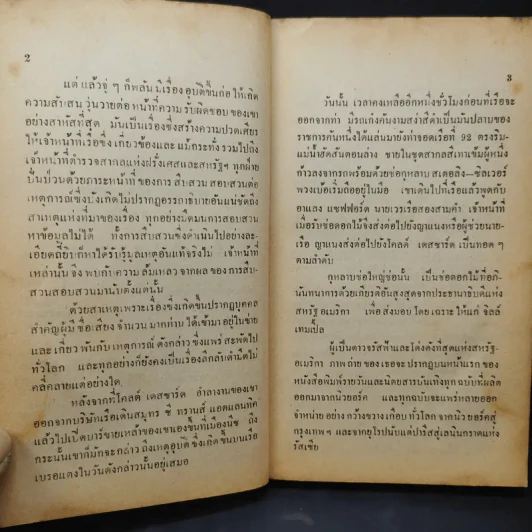 2
แต่แล้วจู่ ๆ ก็พลันมีเรื่องอุบัติขึ้นก่อให้เกิด
ความสับสนวุ่นวายต่อหน้าที่ความรับผิดชอบของเขา
อย่างสาหัสที่สุด มันเป็นเรื่องซึ่งสร้างความปวดเศียร
ให้เจ้าหน้าที่เรือซึ่งเกี่ยวข้องและแม้กระทั่งรวมไปถึง
เจ้าหน้าที่ตำรวจสากลแห่งฝรั่งเศสและสหรัฐฯ ทุกฝ่าย
ปั่นป่วนด้วยภาระหน้าที่ของการสืบสวนสอบสวนต่อ
เหตุการณ์ซึ่งบังเกิดไม่ปรากฏอรรถาธิบายอันแน่ชัดถึง
สาเหตุแห่งที่มาของเรื่อง ทุกอย่างมืดมนการสอบสวน
หาข้อมูลไม่ได้ ทั้งการสืบสวนซึ่งดำเนินไปอย่างละ-
เอียดถี่ยิบก็หาได้รับรู้มูลเหตุอันแท้จริงไม่ เจ้าหน้าที่
เหล่านั้นจึงพบกับความล้มเหลวจากผลของการสืบ-
สวนสอบสวนมานับตั้งแต่นั้น
ด้วยสาเหตุเพราะเรื่องซึ่งเกิดขึ้นปรากฏบุคคล
สำคัญผู้มีชื่อเสียงจำนวนมากท่านได้เข้ามาอยู่ในข่าย
และเกี่ยวพันกับเหตุการณ์ดังกล่าวซึ่งแพร่สะพัดไป
ทั่วโลก และทุกอย่างก็ยังคงเป็นเรื่องลึกลับดำมืดไม่
คลี่คลายแต่อย่างใด
หลังจากที่ไคลด์ เดสชาร์ด อำลางานของเขา
ออกจากบริษัทเรือเดินสมุทร ซี ทรานส์ แอตแลนติค
แล้วไปเปิดบาร์ขายเหล้าของเขาเองขึ้นที่เมืองนีซ ถึง
กระนั้นเขาก็มักจะกล่าวถึงเหตุอุบัติซึ่งเกิดขึ้นบนเรือ
เบรอแตงในวันดังกล่าวนั้นอยู่เสมอ
3
วันนั้น เวลาคงเหลืออีกหนึ่งชั่วโมงก่อนที่เรือจะ
ออกจากท่า มีรถเก๋งคันงามสง่าสีดำเป็นมันปลาบของ
ราชการคันหนึ่งได้แล่นมายังท่าจอดเรือที่ 92 ตรงริม-
แม่น้ำฮัดสันตอนล่าง ชายในชุดสากลสีเทาเข้มผู้หนึ่ง
ก้าวลงจากรถพร้อมด้วยช่อกุหลาบ สเตอลิ่ง—ซิลเวอร์
พวงเบ้อเริ่มถืออยู่ในมือ เขาเดินไปที่เรือแล้วพูดกับ
อาแลง แซฟฟอร์ด นายเวรเรือสองสามคำ เจ้าหน้าที่
เมื่อรับช่อดอกไม้จึงส่งต่อไปยังญาแนงหรือผู้ช่วยนาย-
เรือ ญาแนงส่งต่อไปยังไคลด์ เดสชาร์ด เป็นทอด ๆ
ตามลำดับ
กุหลาบช่อใหญ่ช่อนั้น เป็นช่อดอกไม้ที่อภิ-
นันทนาการด้วยเกียรติอันสูงสุดจากประธานาธิบดีแห่ง
สหรัฐอเมริกา เพื่อส่งมอบโดยเฉพาะให้แก่ จิลล์
เทมเปิ้ล
ผู้เป็นดาราจรัสฟ้าและโด่งดังที่สุดแห่งสหรัฐ-
อเมริกา ภาพถ่ายของเธอจะปรากฏบนหน้าแรกของ
หนังสือพิมพ์รายวันและนิตยสารบันเทิงทุกฉบับที่ผลิต
ออกมาจากนิวยอร์ค และทุกฉบับจะแพร่หลายออก
จำหน่ายอย่างกว้างขวางเกือบทั่วโลก จากนิวยอร์คสู่
กรุงเทพฯ และจากยุโรปนับแต่ปารีสสู่เลนินกราดแห่ง
รัสเซีย